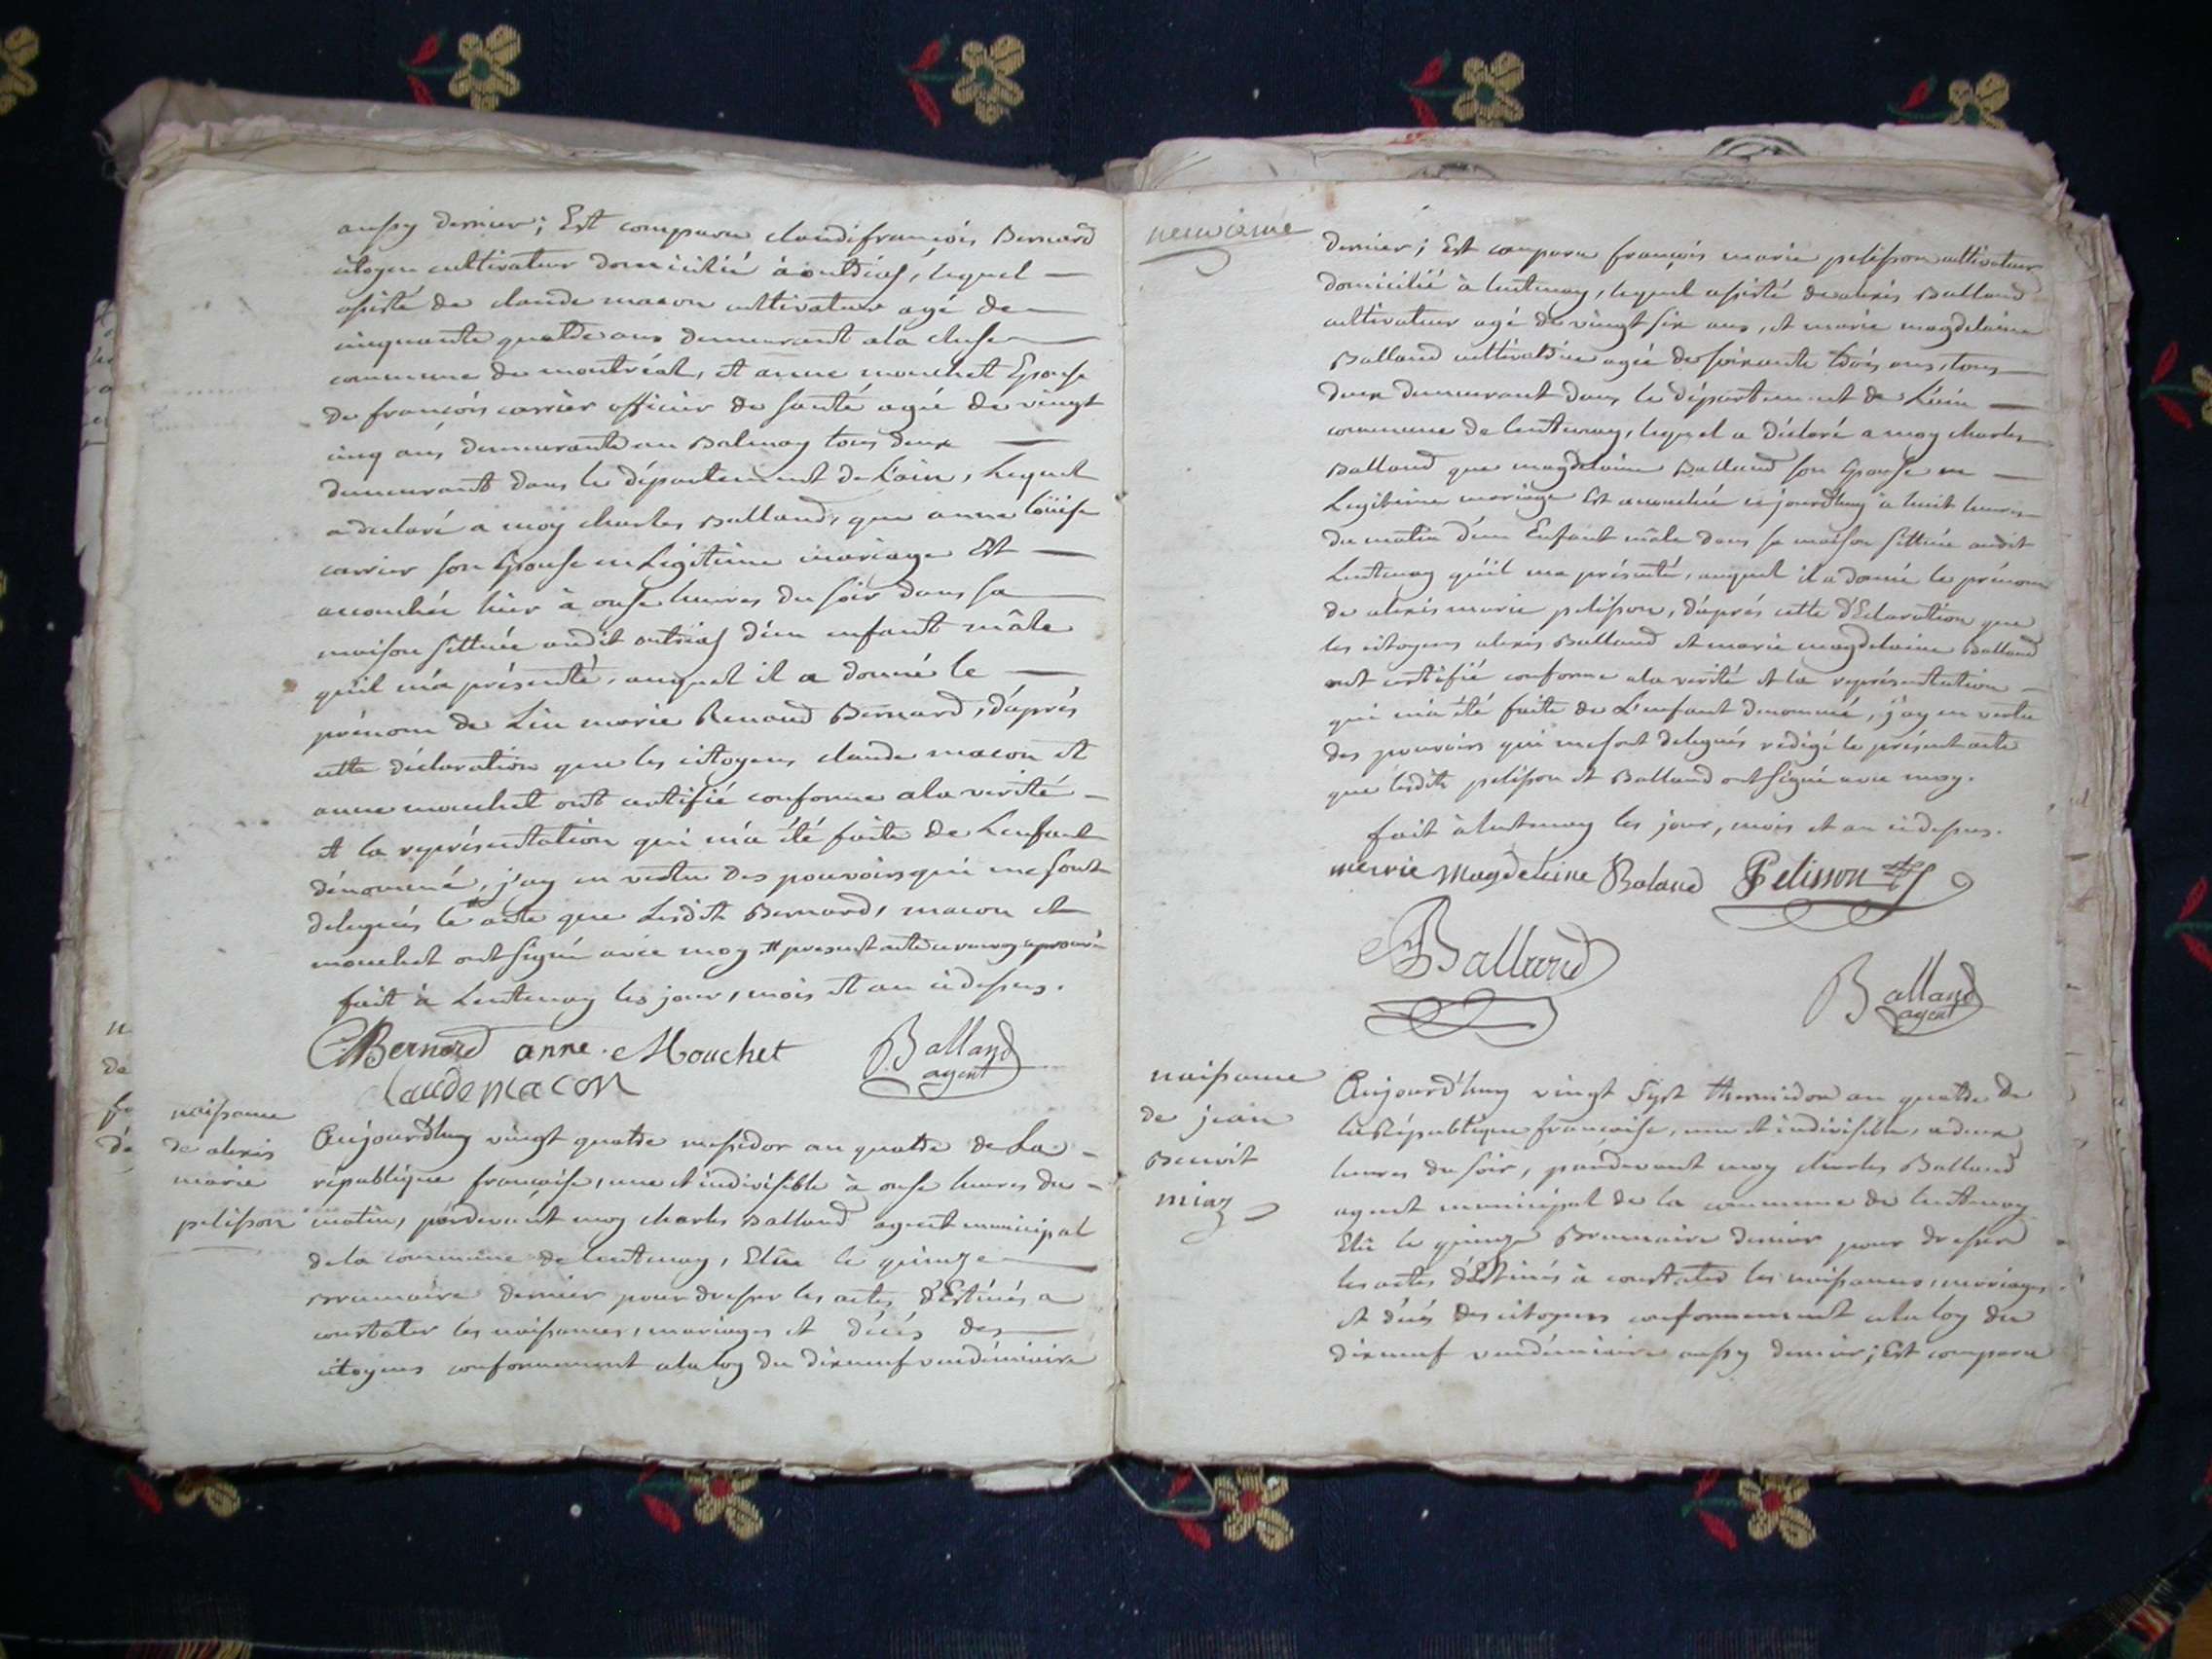 aussy dernier; Est comparu claudefrançois Bernard
citoyen cultivateur domicilié à outriaf, lequel
assisté de claude macon cultivateur agé de
cinquante quatre ans demeurant ala cluse
commune de montréal, et anne mouchet Epouse
de françois carrier officier de santé agée de vingt
cinq ans demeurante au Balmay tous deux
demeurants dans le département de L'ain, Lequel
a declaré a moy charles Balland, que anne löüise
carrier son Epouse en Legitime mariage Est
accouchée hier à onse heures du soir dans sa
maison sittuée audit outriaf d'un enfant mâle
qu'il m'a présenté, auquel il a donné le
prénom de Lin marie Renaud Bernard, d'aprés
cette déclaration que les citoyens claude macon et
anne mouchet ont certifié conforme ala verité
et la représentation qui m'a été faite de L'enfant
dénommé, j'ay en vertu des pouvoirs qui me sont
delegués le # acte que Lesdits Bernard, macon et
mouchet ont signé avec moy # present acte
fait à Lentenay les jour, mois et an cidessus.
Bernard anne Mouchet Balland
agent
claude macon
naissance
de alexis
marie
pelisson
Aujourd'huy vingt quatre messidor an quatre de La
république françoise, une et indivisible à onse heures du
matin, pardevant moy charles Balland agent municipal
de la commune de lentenay, Elûe le quinze
Brumaire dernier pour dresser les actes d'Estinés a
constater les naissances, mariages et décés des
citoyens conformement ala loy du dixneuf vendémiaire
neuvieme
dernier; Est comparu françois marie pelisson cultivateur
domicilié à lentenay, lequel assisté de alexis Balland
cultivateur agé de vingt six ans, et marie magdelaine
Balland cultivatrice agée de soixante trois ans, tous
deux demeurant dans le département de L'ain
commune de lentenay, lequel a déclaré a moy charles
Balland que magdelaine Balland son Epouse en
Legitime mariage Est accouchée cejourd'huy à huit heures
du matin d'un Enfant mâle dans sa maison sittuée audit
Lentenay qu'il ma présenté, auquel il a donné le prénom
de alexis marie pelisson, d'aprés cette d'Eclaration que
les citoyens alexis Balland et marie magdelaine Balland
ont certifié conforme ala verité et la représentation
qui m'a été faite de L'enfant denommé, j'ay en vertu
des pouvoirs qui me sont delegués redigé le présent acte
que lesdits pelisson et Balland ont signé avec moy.
fait à lentenay les jour, mois et an cidessus.
merie Magdeleine Baland Pelisson
Balland
Balland
agent
naissance
de jean
Benoit
miaz
Aujourd'huy vingt sept thermidor an quatre de
la République françoise, une et indivisible, a deux
heures du soir, pardevant moy charles Balland
agent municipal de la commune de lentenay
Elû le quinze Brumaire dernier pour dresser
les actes d'Estinés à constater les naissances, mariages
et décés des citoyens conformement ala loy du
dixneuf vendémiaire aussy dernier; Est comparu